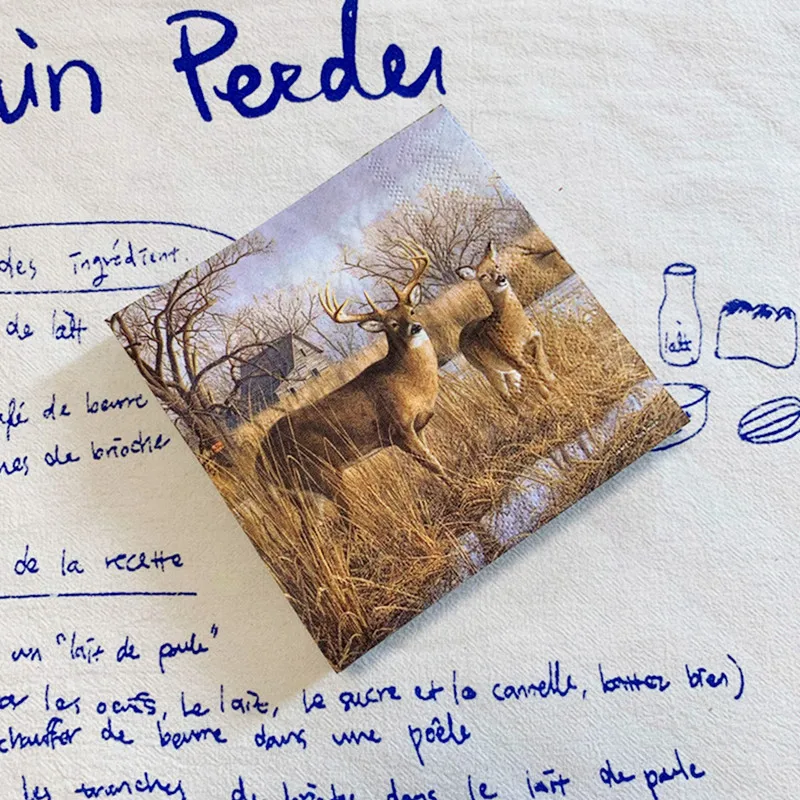 ain Perdu
des ingrédient.
de lait
lait
afé de beurre
hes de brioche
de la recette
un "lait de poule"
les oeufs, le lait, le sucre et la cannelle, battez bien)
chauffer de beurre dans une poêle
les tranches de brioche dans le lait de poule